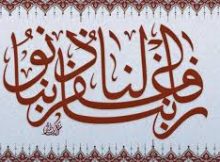 ربنا فاغفر لنا ذنوبنا